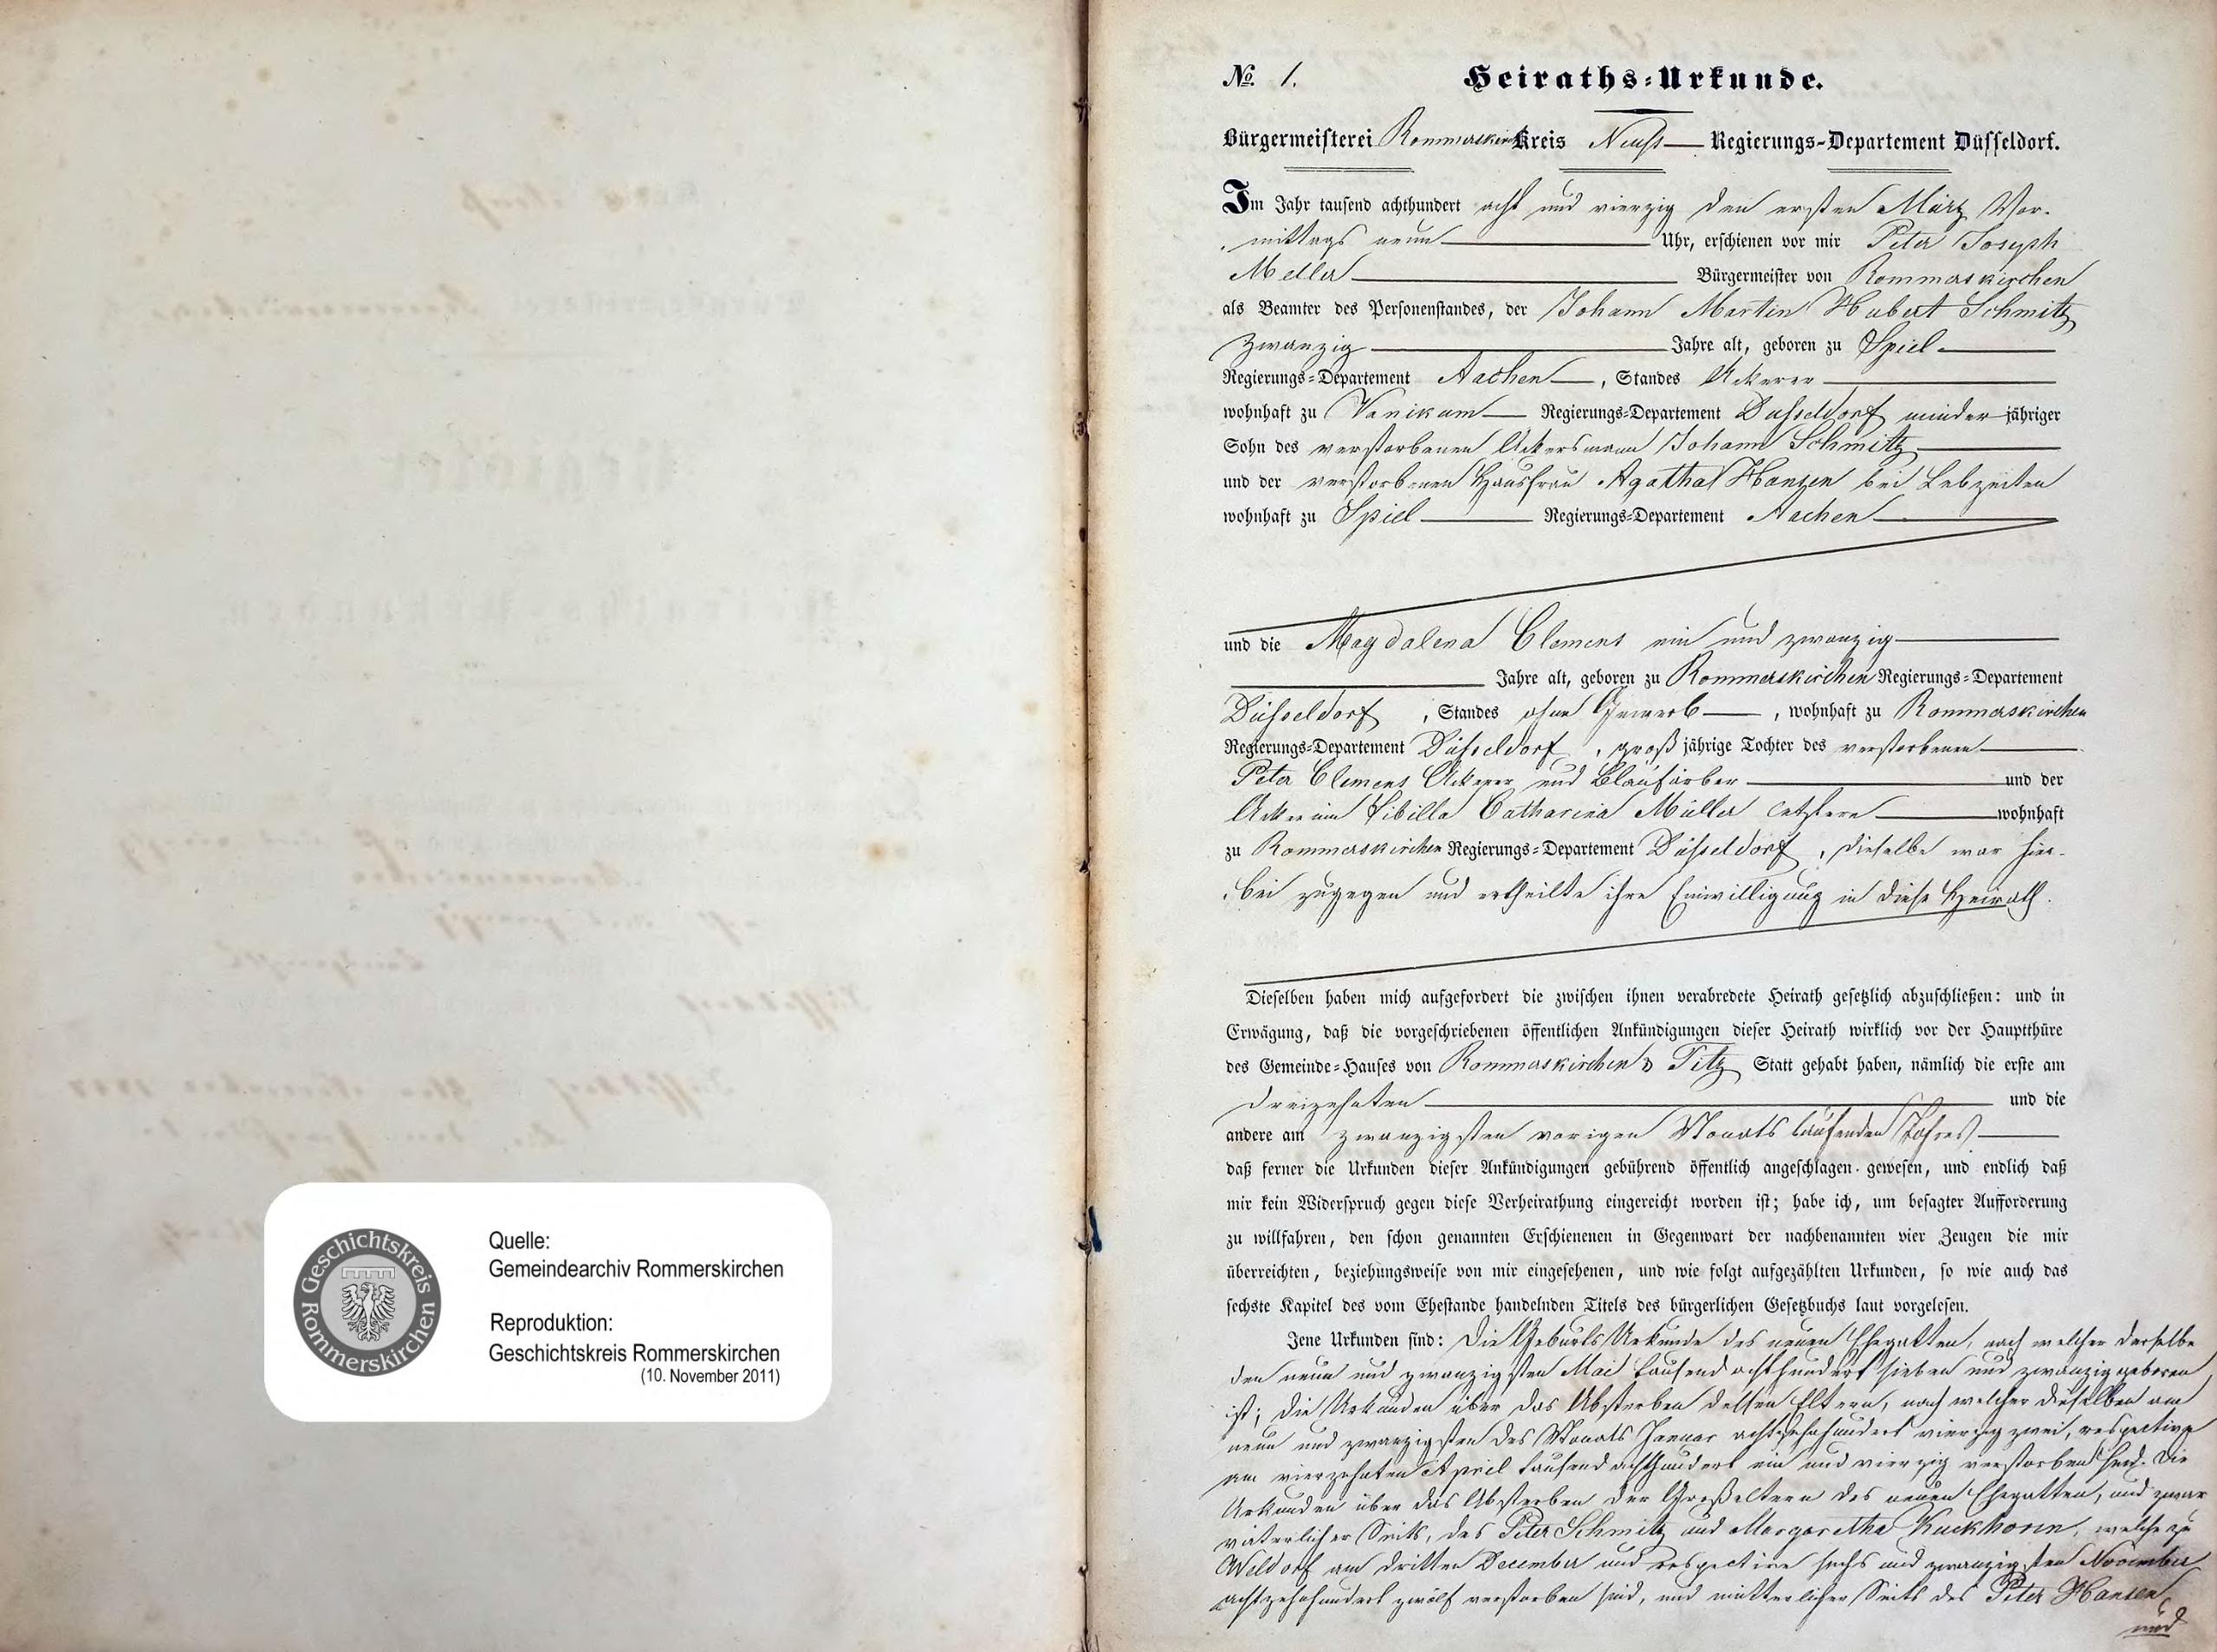 Quelle:
Gemeindearchiv Rommerskirchen
Reproduktion:
Geschichtskreis Rommerskirchen
(10. November 2011)
Geschichtskreis Rommerskirchen
№ 1. Heiraths-Urkunde.
Bürgermeisterei Rommerskirchen Kreis Neuß Regierungs-Departement Düsseldorf.
Im Jahr tausend achthundert acht und vierzig den ersten März Vor-
mittags neun Uhr, erschienen vor mir Peter Joseph
Meller Bürgermeister von Rommerskirchen
als Beamter des Personenstandes, der Johann Martin Hubert Schmitz
zwanzig Jahre alt, geboren zu Spiel
Regierungs-Departement Aachen, Standes Ackerer
wohnhaft zu Vanikum Regierungs-Departement Düsseldorf minder jähriger
Sohn des verstorbenen Ackersmann Johann Schmitz
und der verstorbenen Hausfrau Agatha Hansen bei Lebzeiten
wohnhaft zu Spiel Regierungs-Departement Aachen
und die Magdalena Clemens ein und zwanzig
Jahre alt, geboren zu Rommerskirchen Regierungs-Departement
Düsseldorf, Standes ohne Gewerb, wohnhaft zu Rommerskirchen
Regierungs-Departement Düsseldorf, groß jährige Tochter des verstorbenen
Peter Clemens Ackerer und Blaufärber und der
Ackerinn Sibilla Catharina Müller letztere wohnhaft
zu Rommerskirchen Regierungs-Departement Düsseldorf, dieselbe war hier-
bei zugegen und ertheilte ihre Einwilligung in diese Heirath.
Dieselben haben mich aufgefordert die zwischen ihnen verabredete Heirath gesetzlich abzuschließen: und in
Erwägung, daß die vorgeschriebenen öffentlichen Ankündigungen dieser Heirath wirklich vor der Hauptthüre
des Gemeinde-Hauses von Rommerskirchen & Titz Statt gehabt haben, nämlich die erste am
dreizehnten und die
andere am zwanzigsten vorigen Monats laufenden Jahres
daß ferner die Urkunden dieser Ankündigungen gebührend öffentlich angeschlagen gewesen, und endlich daß
mir kein Widerspruch gegen diese Verheirathung eingereicht worden ist; habe ich, um besagter Aufforderung
zu willfahren, den schon genannten Erschienenen in Gegenwart der nachbenannten vier Zeugen die mir
überreichten, beziehungsweise von mir eingesehenen, und wie folgt aufgezählten Urkunden, so wie auch das
sechste Kapitel des vom Ehestande handelnden Titels des bürgerlichen Gesetzbuchs laut vorgelesen.
Jene Urkunden sind: Die Geburts Urkunde des neuen Ehegatten, nach welcher derselbe
den neun und zwanzigsten Mai tausend achthundert sieben und zwanzig geboren
ist; die Urkunden über das Absterben dessen Eltern, nach welcher dieselben am
neun und zwanzigsten des Monats Januar achtzehnhundert vierzig zwei, respective
am vierzehnten April tausend achthundert ein und vierzig verstorben sind. Die
Urkunden über das Absterben der Großeltern des neuen Ehegatten, und zwar
väterlicher Seits, des Peter Schmitz und Margaretha Kuckhorn, welche zu
Weldorf am dritten December und respective sechs und zwanzigsten November
achtzehnhundert zwölf verstorben sind, und mütterlicher Seits des Peter Hansen
und